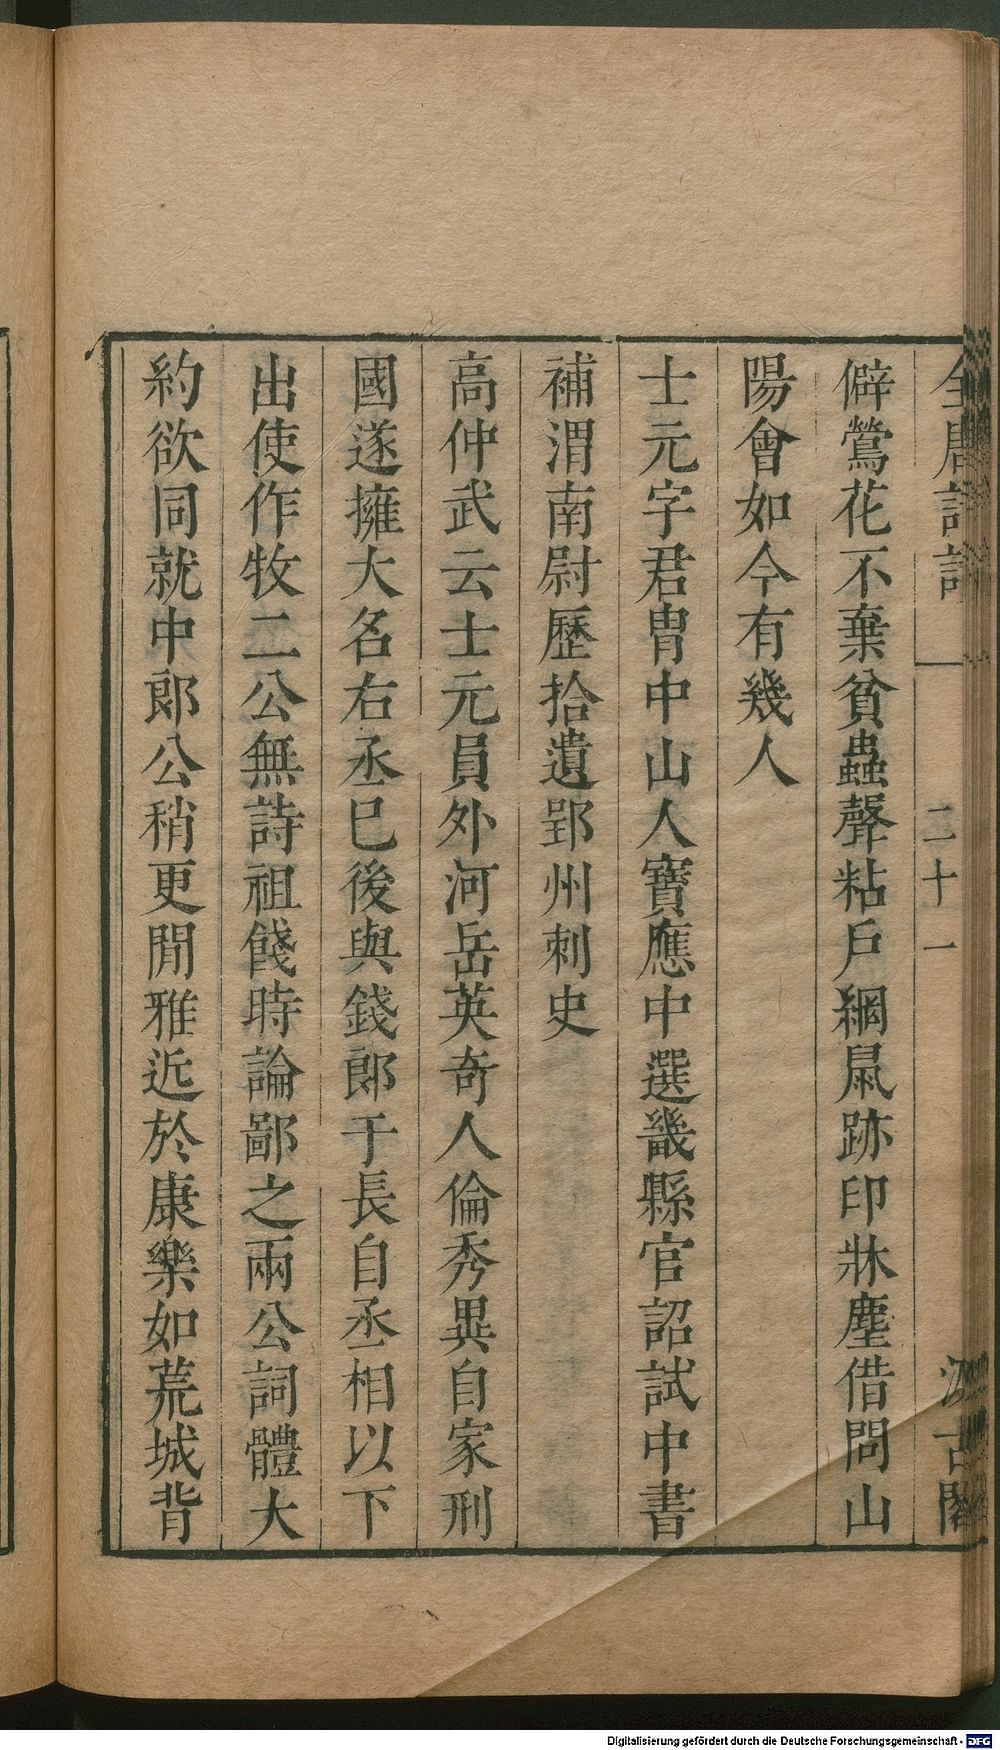 全唐詩話 二十一 汲古閣
僻鶯花不棄貧蟲聲粘戶網鼠跡印牀塵借問山
陽會如今有幾人
士元字君冑中山人寶應中選畿縣官詔試中書
補渭南尉歷拾遺郢州刺史
高仲武云士元員外河岳英奇人倫秀異自家刑
國遂擁大名右丞巳後與錢郎于長自丞相以下
出使作牧二公無詩祖餞時論鄙之兩公詞體大
約欲同就中郎公稍更閒雅近於康樂如荒城背
Digitalisierung gefördert durch die Deutsche Forschungsgemeinschaft - DFG